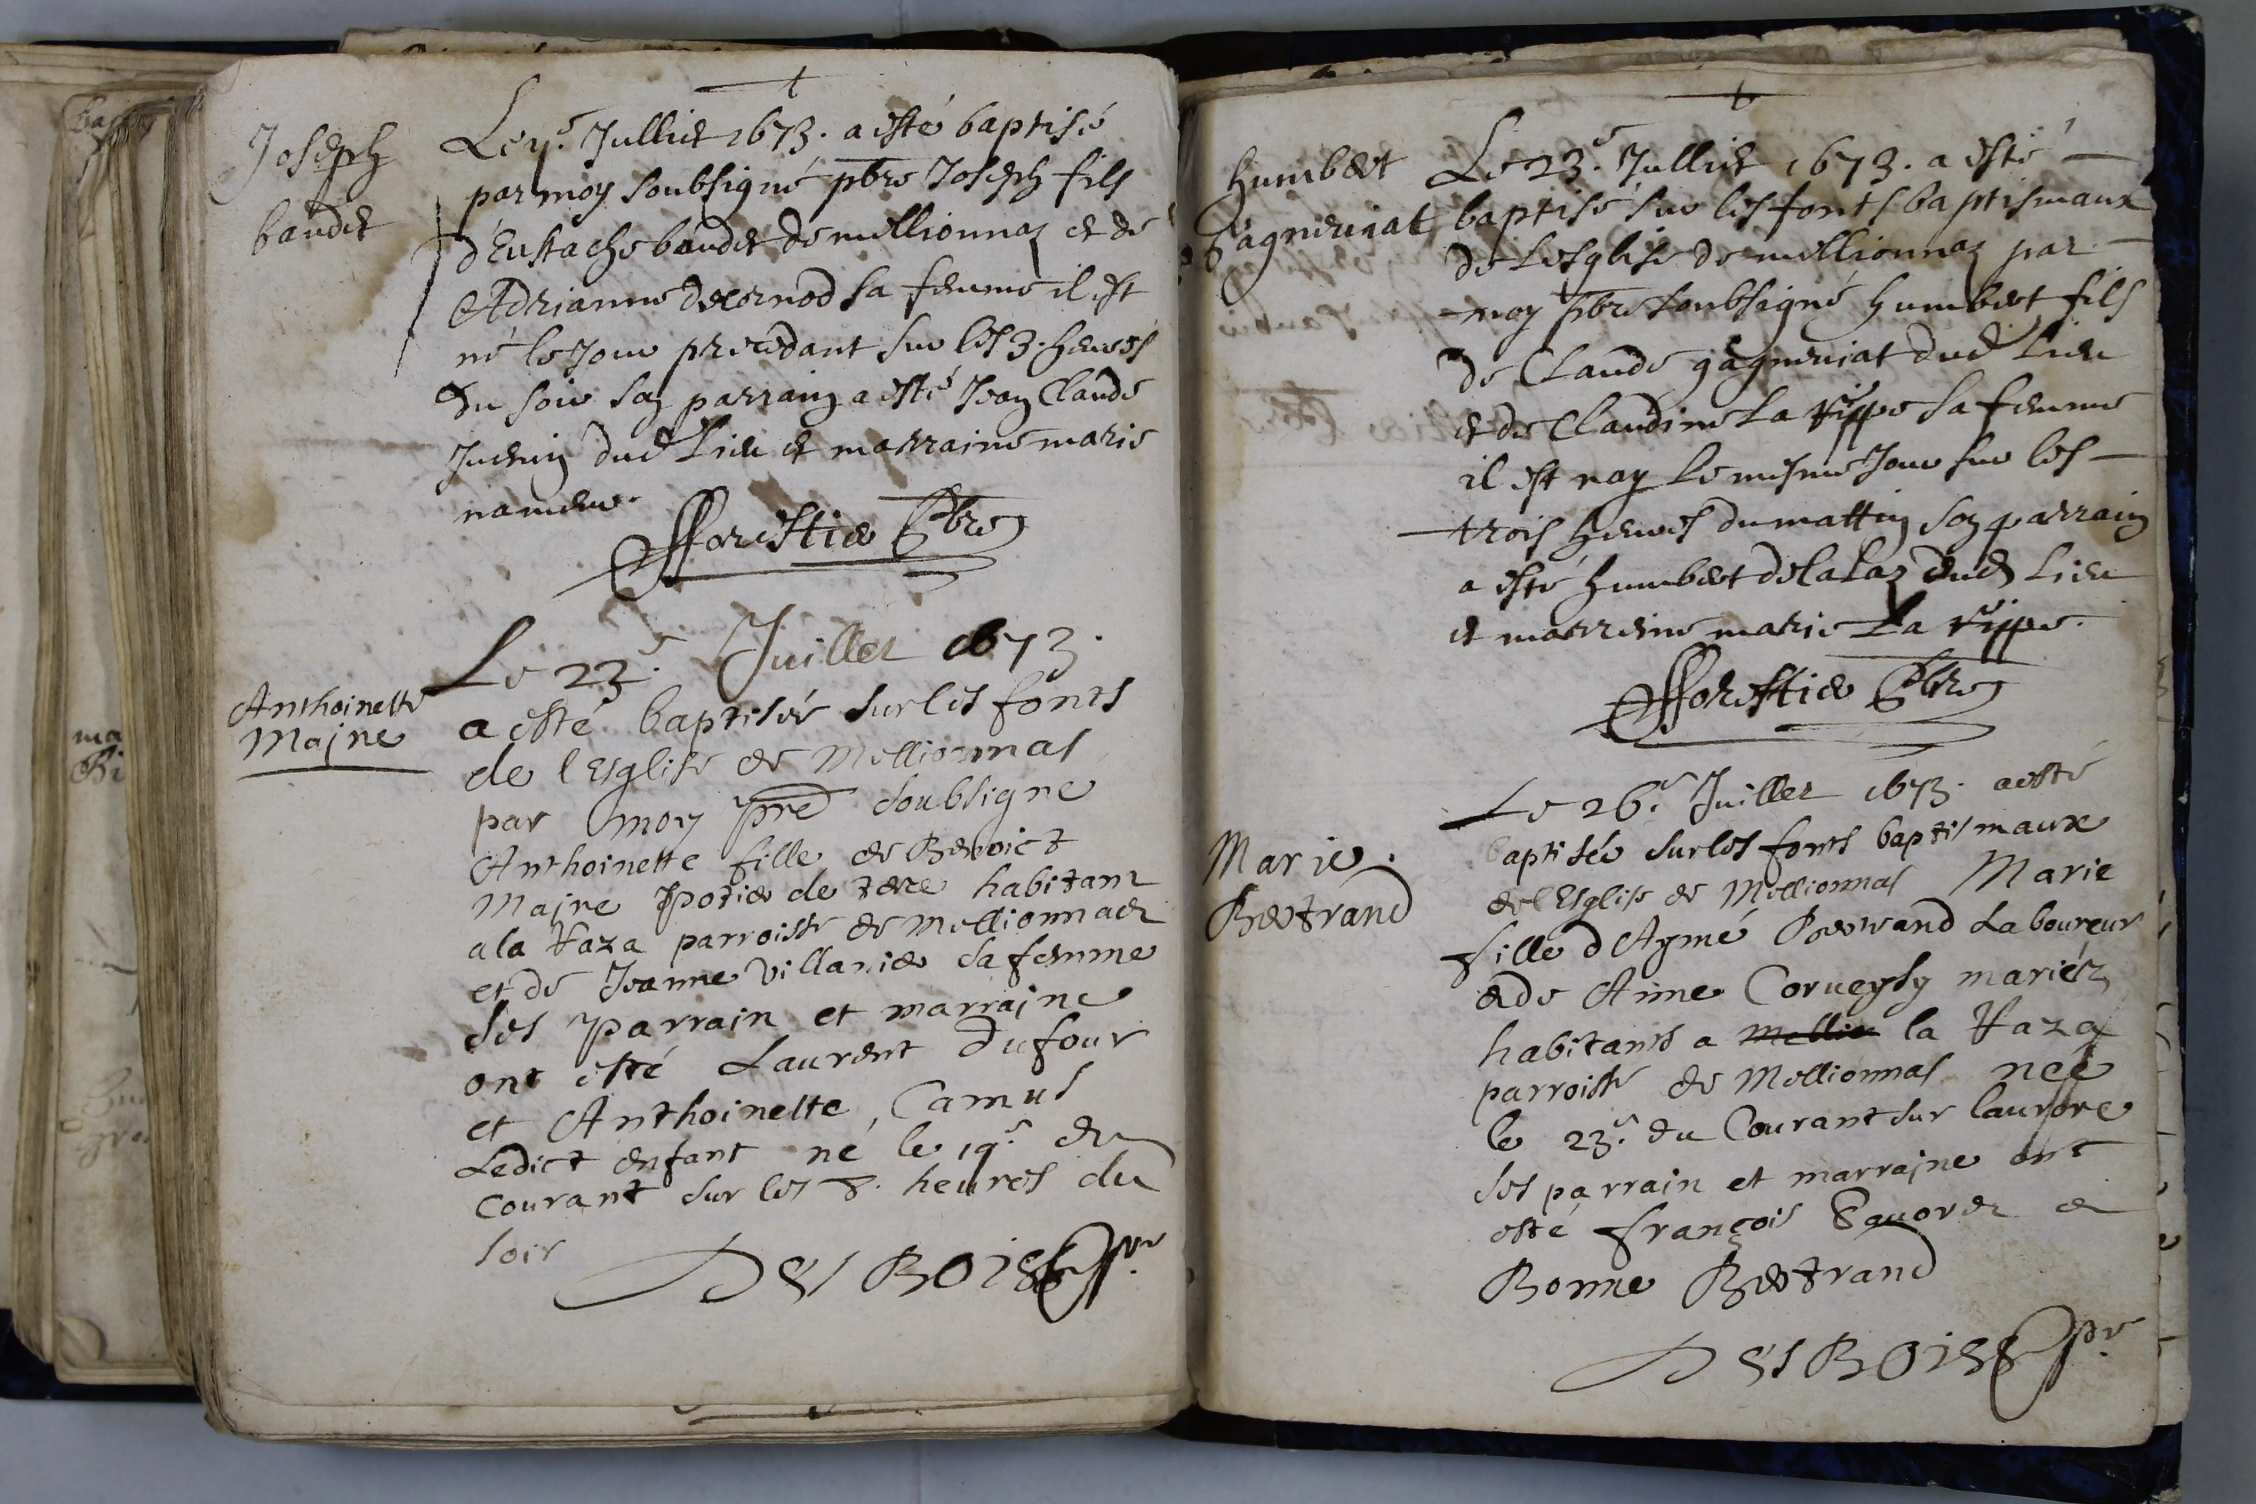 Joseph
baudet
Le 9.e Jullliet 1673. a esté baptisé
par moy soubsigné pbre Joseph fils
d'Eustache baudet de mellionnaz et de
Adrianne decornod sa femme il est
né le Jour precedant sur les 3. heures
du soir son parrain a esté Jean Claude
Juenin dud Lieu et marraine marie
fforestier Pbre
Anthoinette
Majne
Le 23.e Juillet 1673.
a esté baptisée sur les fonts
de l'Esglise de Mellionnas
par moy pre soubsigne
Anthoinette fille de Benoict
Majne Potier de terre habitant
a la Raza parroisse de Mellionnaz
et de Jeanne Villanier sa femme
ses parrain et marrajne
ont esté Laurent Dufour
et Anthoinette Camus
Ledict enfant né le 19.e du
Courant sur les 8. heures du
soir
DesBois pr.
humbert
gagneuiat
Le 23.e Jullliet 1673. a esté
baptisé sur les fonts baptismaux
de L'esglise de mellionnaz par
moy pbre soubsigné humbert fils
de Claude gagneuiat dud Lieu
et de Claudine La rippe sa femme
il est nay Le mesme Jour sur les
trois heures du mattin son parrain
a esté humbert delalaz dud Lieu
et marreine marie La rippe.
fforestier Pbre
Marie
Bertrand
Le 26.e Juillet 1673. a esté
baptisée sur les fonts baptismaux
de l'Esglise de Mellionnas Marie
fille d'Aymé Bertrand Laboureur
& de Anne Corueysy mariéz
habitants a la Raza
parroisse de Mellionnas née
le 23.e du Courant sur laurore
ses parrain et marrajne ont
esté françois &
Bonne Bertrand
DesBois pr.